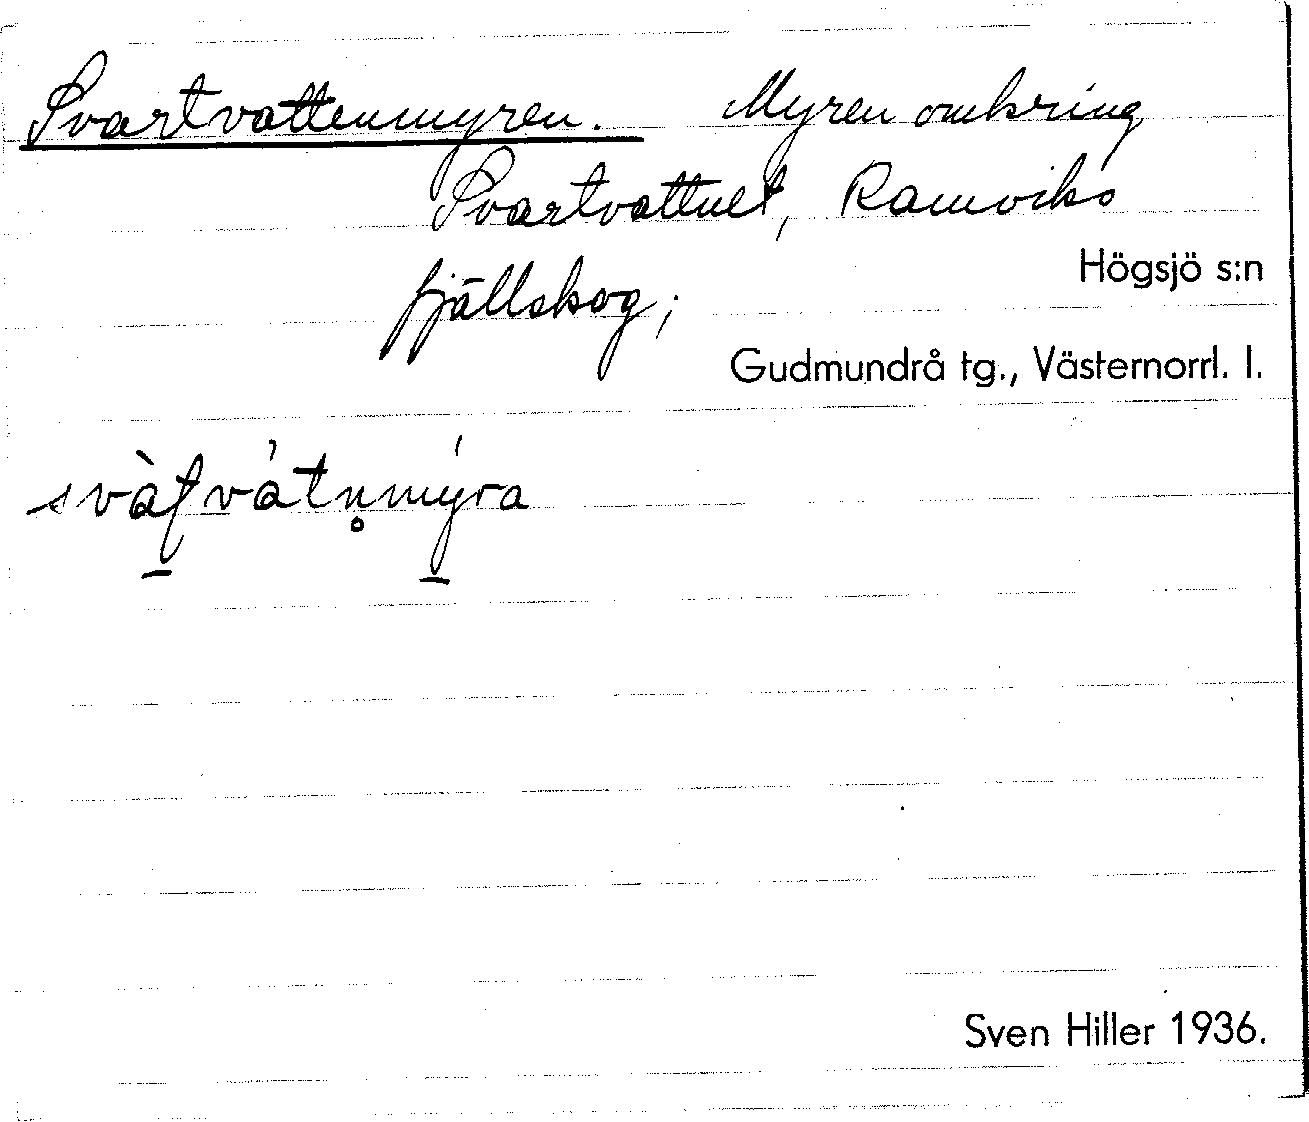 Svartvattenmyren. Myren omkring
Svartvattnet, Ramviks
fjällskog;
Högsjö s:n
Gudmundrå tg., Västernorrl. l.
Sven Hiller 1936.